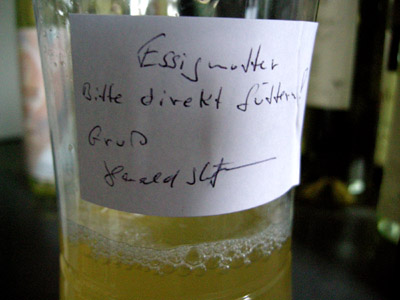 Essigmutter
Bitte direkt füttern!
Gruß
Harald